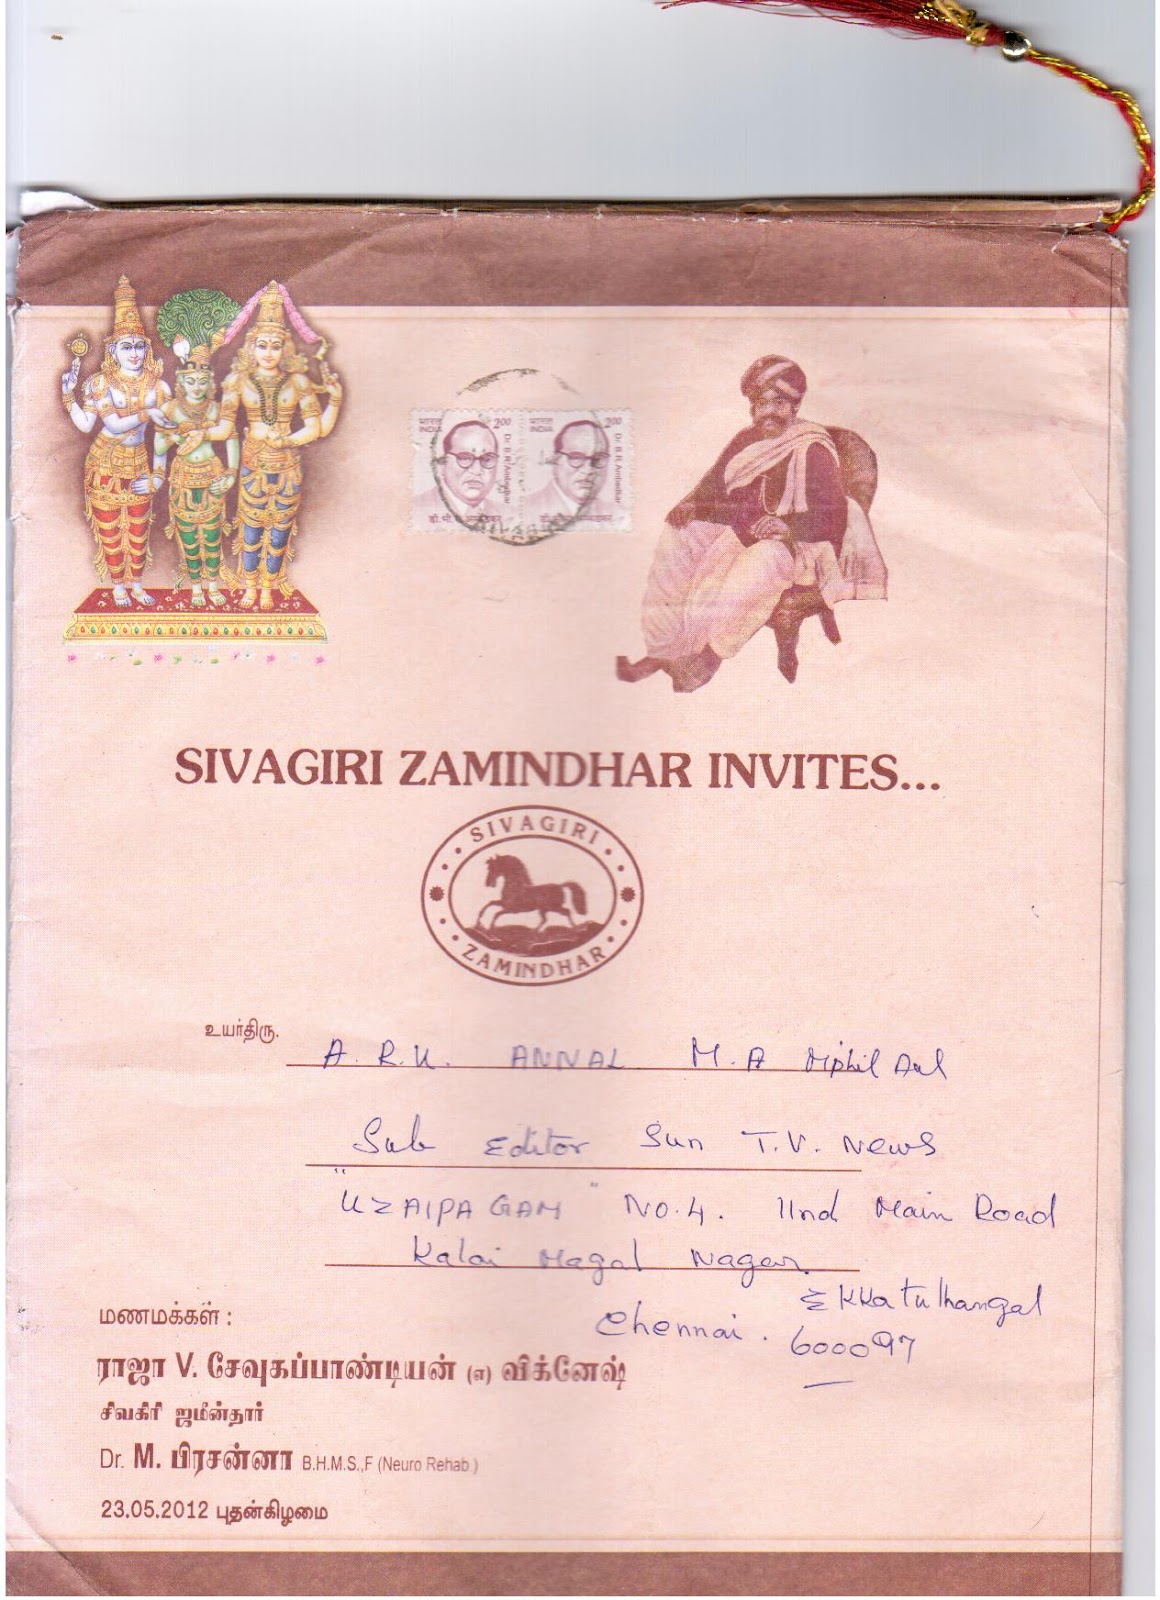 भारत INDIA 2.00 Dr. B.R. Ambedkar
भारत INDIA 2.00 Dr. B.R. Ambedkar
SIVAGIRI ZAMINDHAR INVITES...
SIVAGIRI
ZAMINDHAR
உயர்திரு. A. R. U. ANNAL M.A Mphil
Sub Editor Sun T.V. News
"UZAIPAGAM" No.4. IInd Main Road
Kalai Magal Nagar
Ekkatuthangal
Chennai. 600097
மணமக்கள் :
ராஜா V. சேவுகப்பாண்டியன் (எ) விக்னேஷ்
சிவகிரி ஜமீன்தார்
Dr. M. பிரசன்னா B.H.M.S.,F (Neuro Rehab.)
23.05.2012 புதன்கிழமை